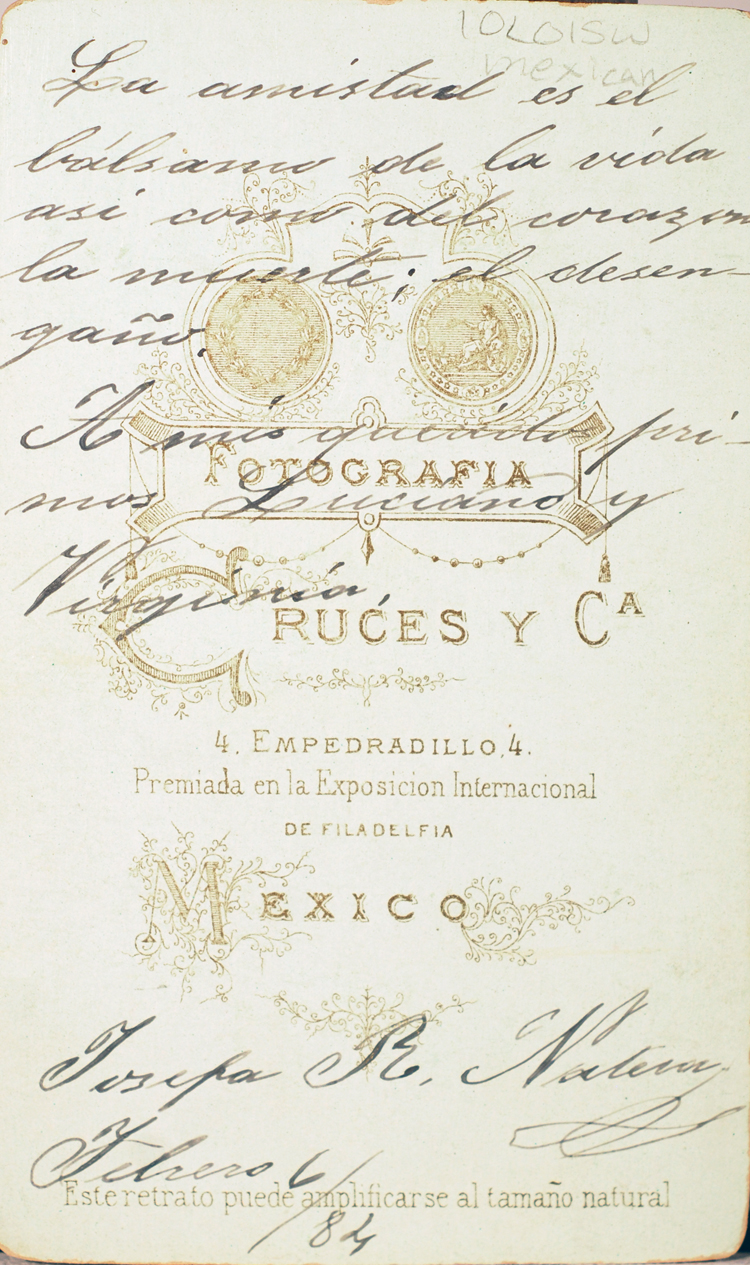 10LOISW
mexican
La amistad es el
bálsamo de la vida
asi como del corazon
la muerte; el desen-
gaño.
A mis queridos pri-
mos Luciano y
Virginia,
FOTOGRAFIA
CRUCES Y CA
4, EMPEDRADILLO, 4.
Premiada en la Exposicion Internacional
DE FILADELFIA
MEXICO
Josefa R. Natera
Febrero 6/84
Este retrato puede amplificarse al tamaño natural